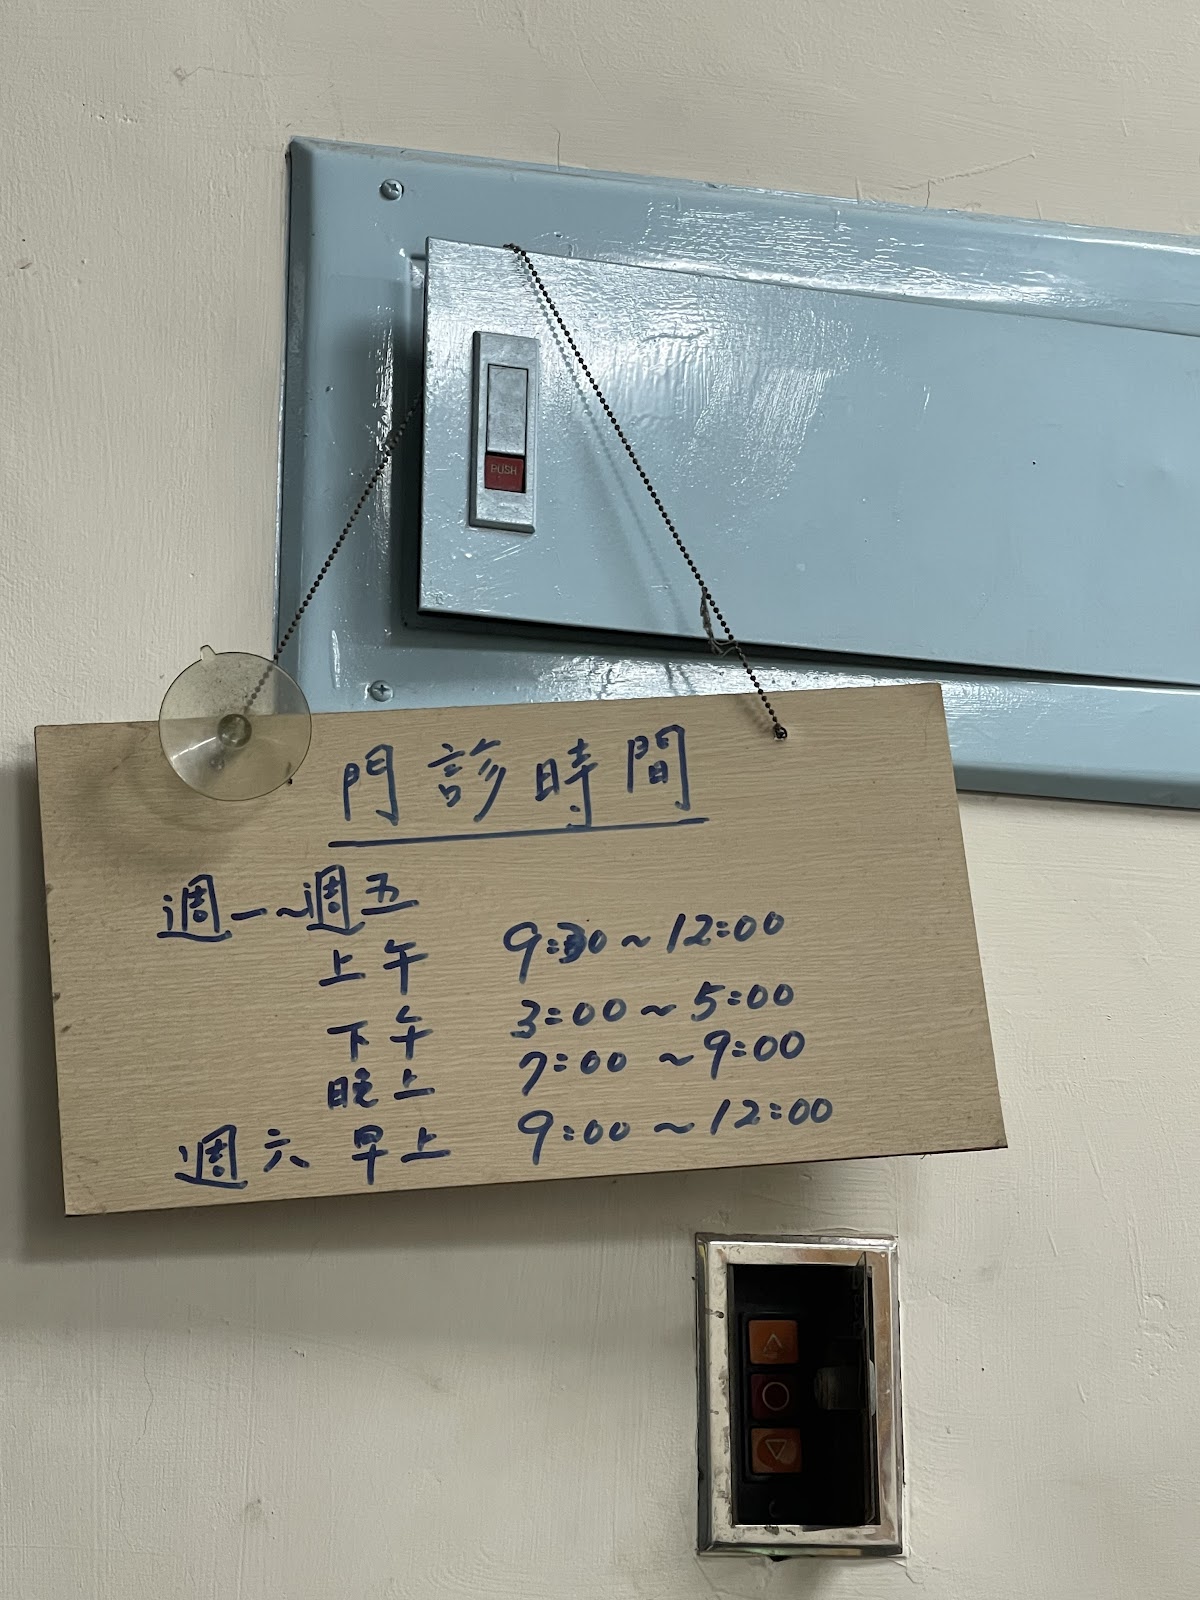 PUSH
門診時間
週一~週五
上午 9:30~12:00
下午 3:00~5:00
晚上 7:00~9:00
週六 早上 9:00~12:00